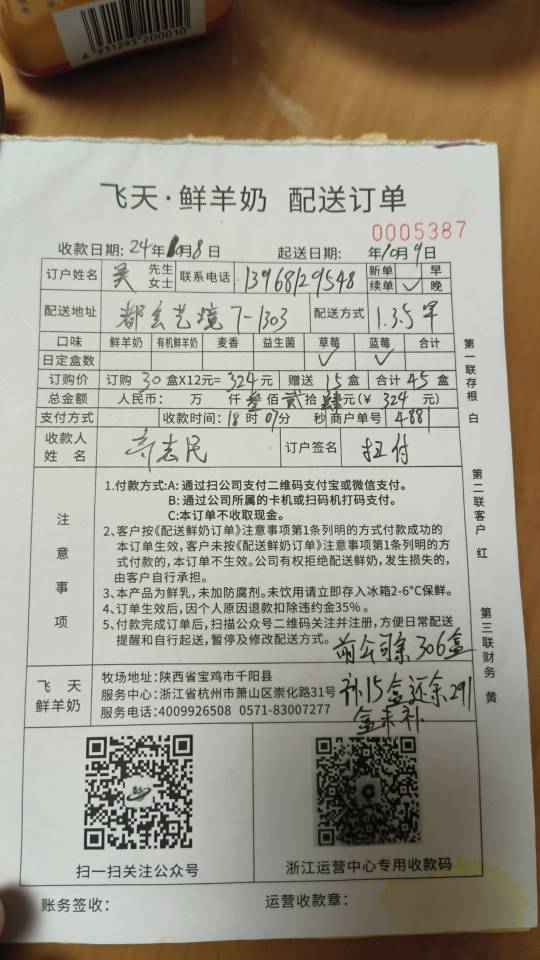 6931293200010
飞天·鲜羊奶 配送订单
0005387
收款日期: 24年10月8日 起送日期: 年10月9日
订户姓名 吴 先生 女士 联系电话 13968129548 新单 续单 ✓ 早 晚
配送地址 都会艺境7-1303 配送方式 1.3.5早
口味 鲜羊奶 有机鲜羊奶 麦香 益生菌 草莓 蓝莓 合计
日定盒数 ✓ ✓
订购价 订购 30 盒X12元= 324 元 赠送 15 盒 合计 45 盒
总金额 人民币: 万 仟 叁佰 贰拾 肆元(¥ 324 元)
支付方式 收款时间: 18时07分 秒 商户单号 4881
收款人姓名 志民 订户签名 扫付
注意事项
1.付款方式:A: 通过扫公司支付二维码支付宝或微信支付。
B: 通过公司所属的卡机或扫码机打码支付。
C:本订单不收取现金。
2、客户按《配送鲜奶订单》注意事项第1条列明的方式付款成功的
本订单生效,客户未按《配送鲜奶订单》注意事项第1条列明的方
式付款的,本订单不生效。公司有权拒绝配送鲜奶,发生损失的,
由客户自行承担。
3、本产品为鲜乳,未加防腐剂。未饮用请立即存入冰箱2-6°C保鲜。
4、订单生效后,因个人原因退款扣除违约金35%。
5、付款完成订单后,扫描公众号二维码关注并注册,方便日常配送
提醒和自行起送,暂停及修改配送方式。
前公司余306盒
补15盒还余291
盒未补
飞天鲜羊奶
牧场地址:陕西省宝鸡市千阳县
服务中心:浙江省杭州市萧山区崇化路31号
服务电话:4009926508 0571-83007277
扫一扫关注公众号 浙江运营中心专用收款码
账务签收: 运营收款章:
第一联存根 白
第二联客户 红
第三联财务 黄